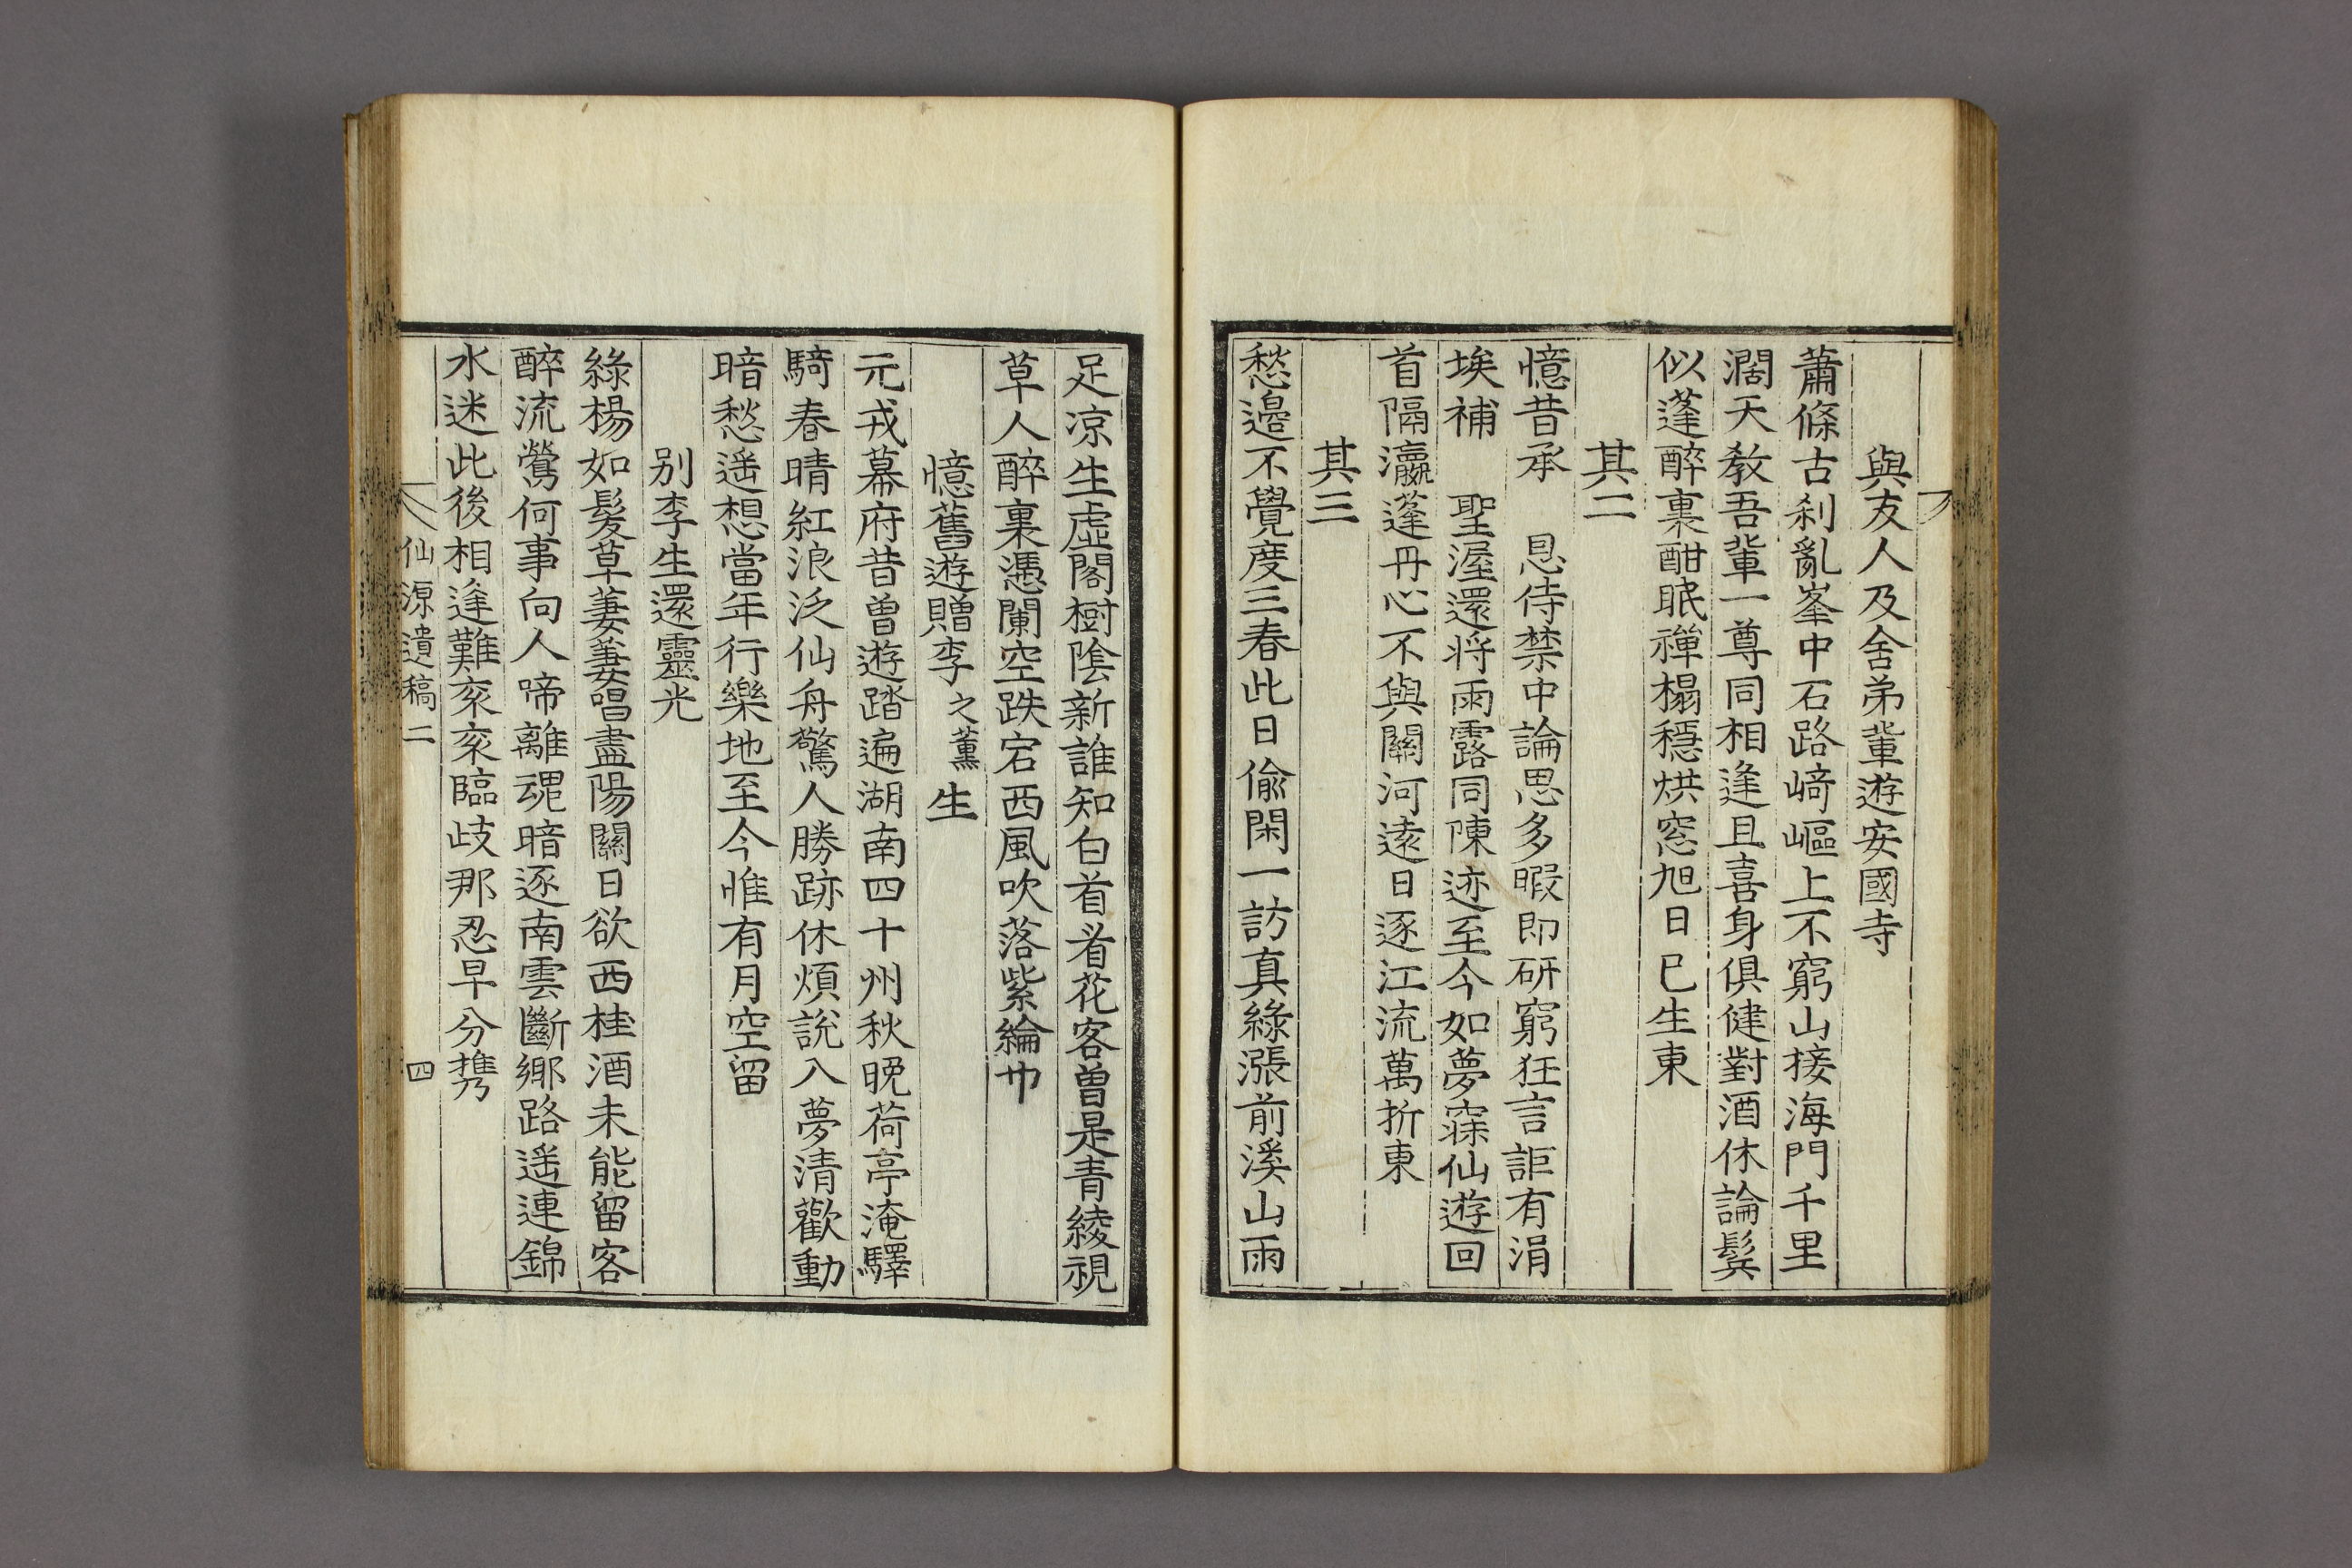 與友人及舍弟輩遊安國寺
蕭條古刹亂峯中石路崎嶇上不窮山接海門千里
濶天教吾輩一尊同相逢且喜身俱健對酒休論鬂
似蓬醉裏酣眠禪榻穩烘窓旭日已生東
其二
憶昔承 恩侍禁中論思多暇即硏窮狂言詎有涓
埃補 聖渥還將雨露同陳迹至今如夢寐仙遊回
首隔瀛蓬丹心不與關河逺日逐江流萬折東
其三
愁邊不覺度三春此日偸閑一訪真綠漲前溪山雨
足凉生虛閣樹陰新誰知白首看花客曽是青綾視
草人醉裏憑闌空跌宕西風吹落紫綸巾
憶舊遊贈李之薰生
元戎幕府昔曽遊踏遍湖南四十州秋晩荷亭淹驛
騎春晴紅浪泛仙舟驚人勝跡休煩說入夢清歡動
暗愁遥想當年行樂地至今惟有月空留
别李生還靈光
綠楊如髮草萋萋唱盡陽關日欲西桂酒未能留客
醉流鶯何事向人啼離魂暗逐南雲斷鄕路遥連錦
水迷此後相逢難衮衮臨歧那忍早分携
仙源遺稿二 四